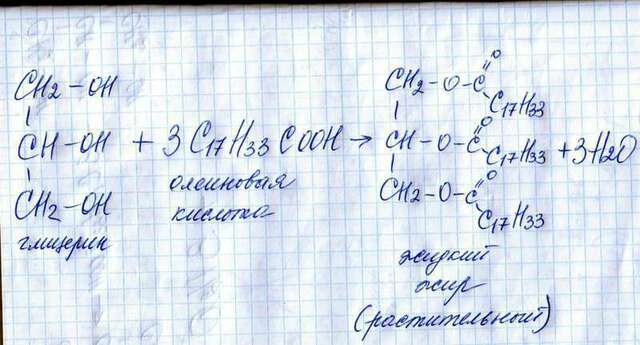 CH2-OH
CH-OH + 3 C17H33COOH →
CH2-OH
глицерин
олеиновая
кислота
CH2-O-C=O
C17H33
CH-O-C=O
C17H33 + 3H2O
CH2-O-C=O
C17H33
жидкий
жир
(растительный)